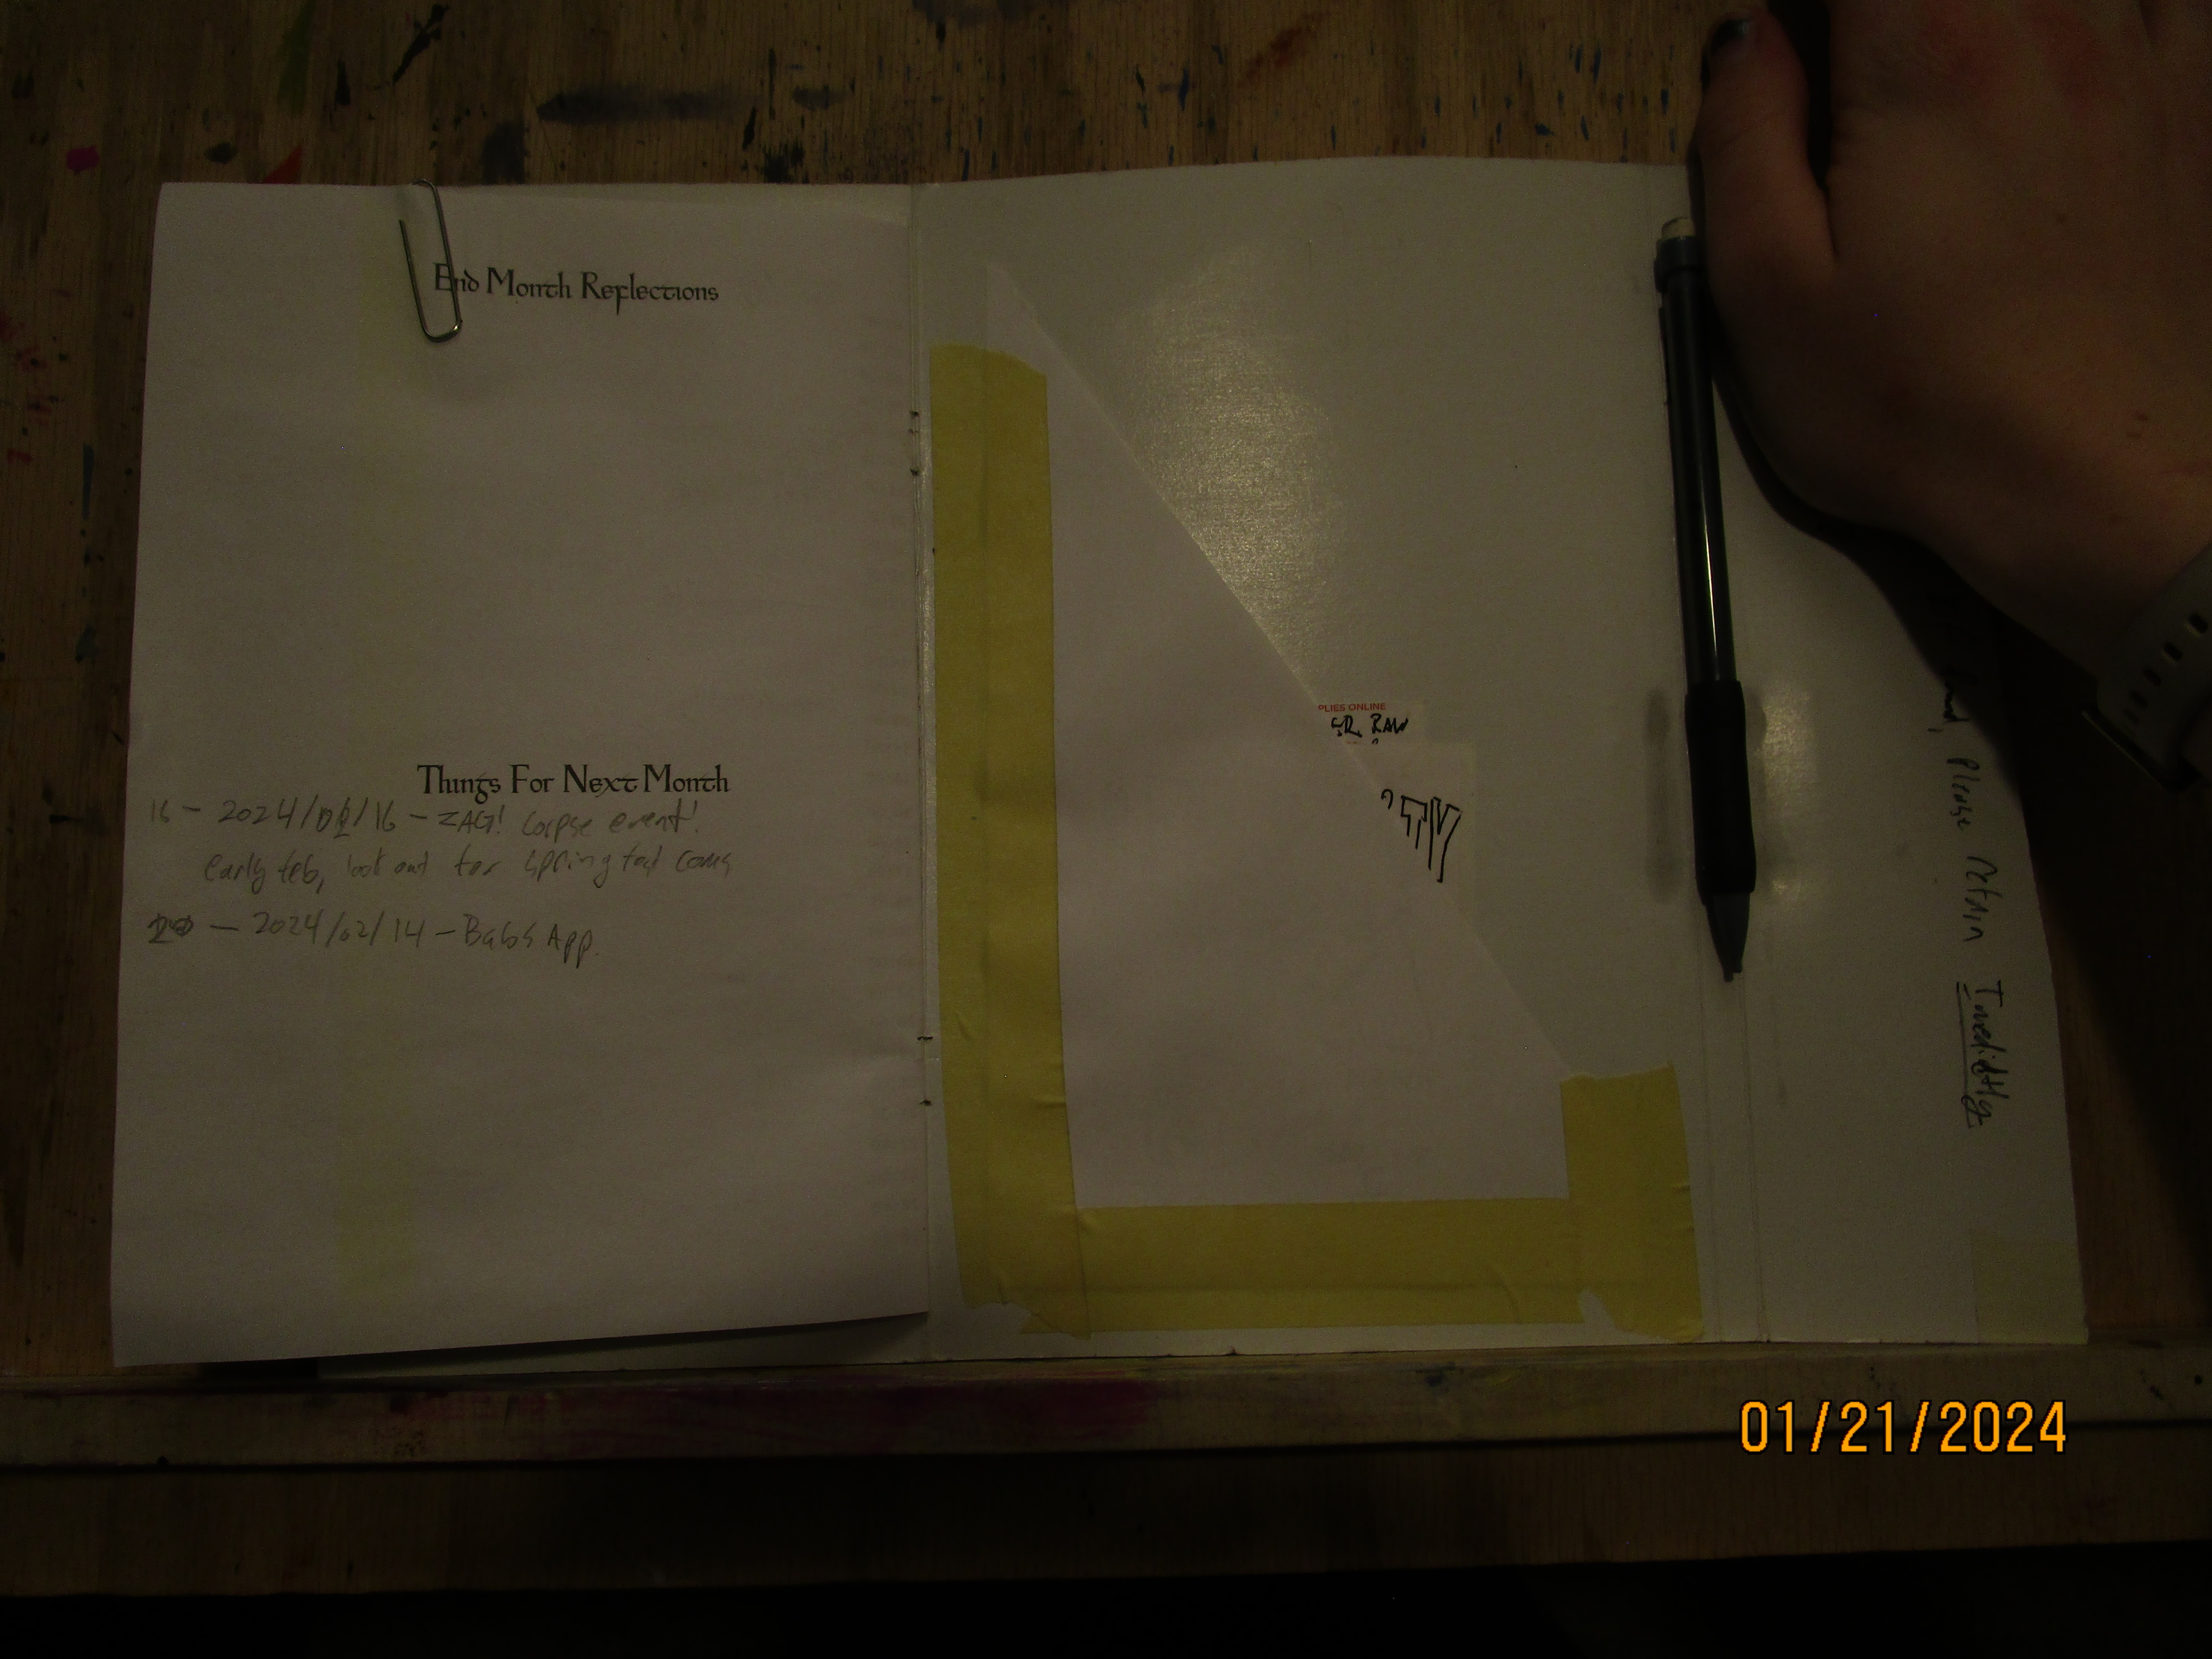 End Month Reflections
Things For Next Month
16 - 2024/02/16 - ZAG! Corpse event!
early feb, look out for spring fest coms
20 - 2024/02/14 - Babs App.
PLIES ONLINE
RAW
Please return Imedidtly
01/21/2024